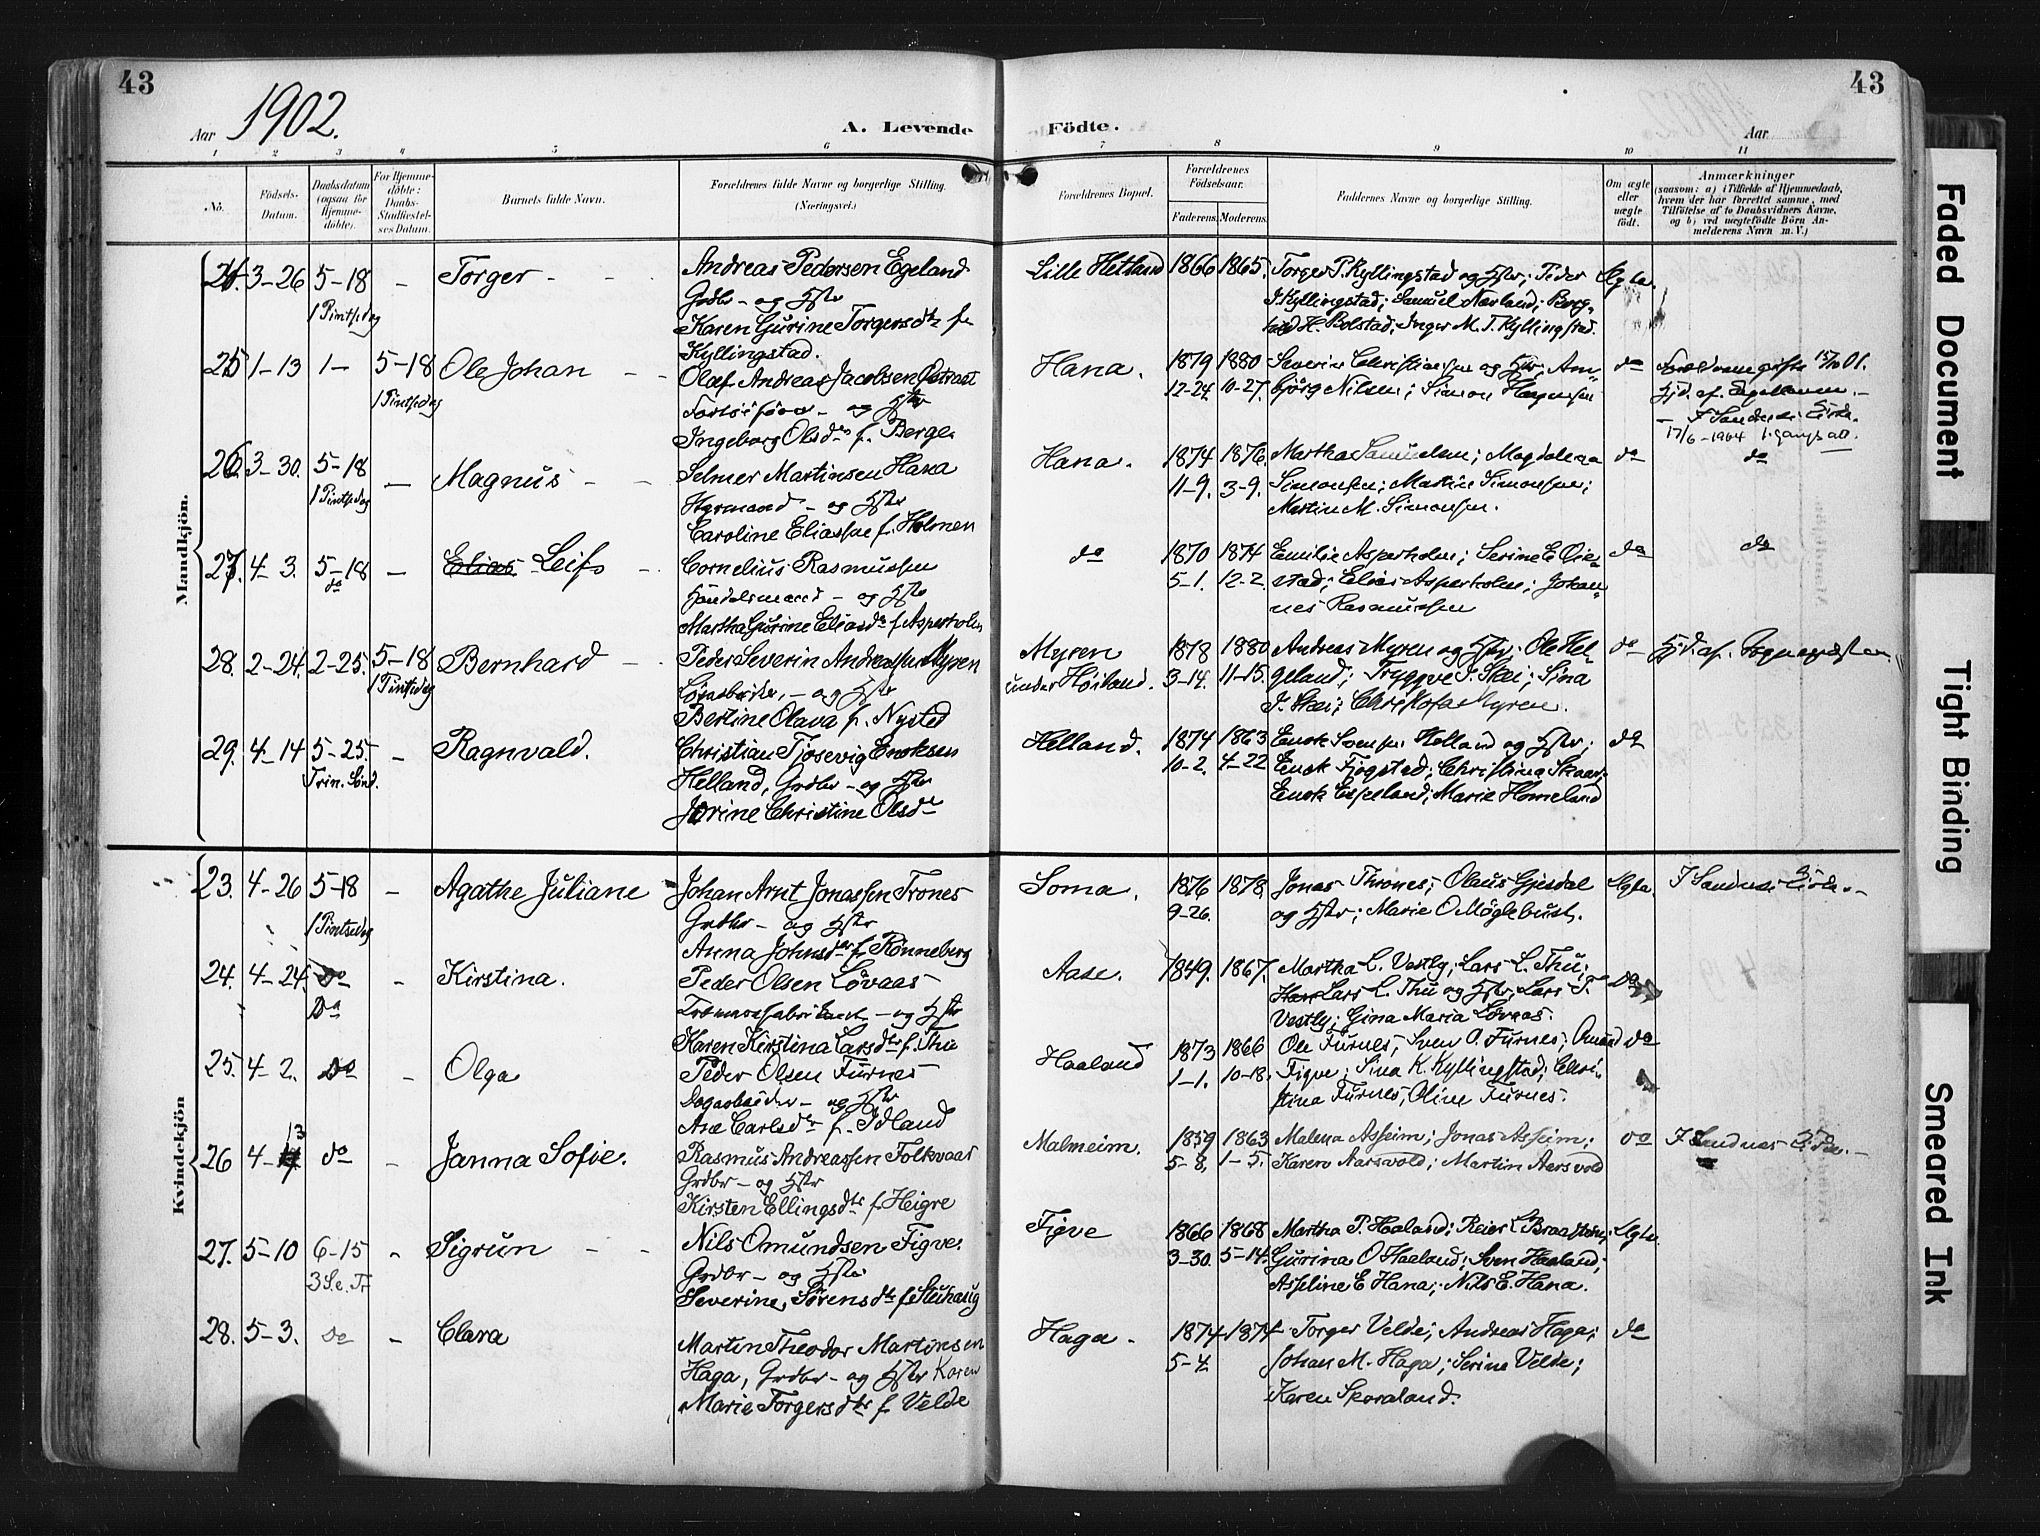 43
Aar 1902.
A. Levende
Födte.
Aar
43
1 2 3 4 5 6 7 8 9 10 11
No.
Födsels-
Datum.
Daabsdatum
(ogsaa for
Hjemme-
döbte).
For Hjemme-
döbte:
Daabs-
Stadfæstel-
ses Datum.
Barnets fulde Navn.
Forældrenes fulde Navne og borgerlige Stilling.
(Næringsvei.)
Forældrenes Bopæl.
Forældrenes
Födselsaar.
Faderens. Moderens.
Faddernes Navne og borgerlige Stilling.
Om ægte
eller
uægte
födt.
Anmærkninger
(saasom: a) i Tilfælde af Hjemmedaab,
hvem der har forrettet samme, med
Tilföielse af to Daabsvidners Navne,
og b) ved uægtefödte Börn An-
melderens Navn m. V.)
Mandkjön.
24. 3-26 5-18 - Torger - -
1 Pintsedag
Andreas Pedersen Egeland
Grdbr - og Hstr
Karen Gurine Torgersdtr f.
Kyllingstad.
Lille Hetland 1866 1865
Torger P. Kyllingstad og Hstr; Peder
J. Kyllingstad; Samuel Nærland; Borg-
hild H. Bolstad; Inger M. T. Kyllingstad.
Ægte.
25 1-13 1- 5-18 Ole Johan - -
1 Pintsedag
Olaf Andreas Jacobsen Østraat
og Hstr
Ingeborg Olsdtr f. Berge.
Hana. 1879 1880
12-24. 10-27.
Severin Christiansen og Hstr; An-
björg Nilsen; Simon Hagensen
do
15/12 01.
Hjd. af
I Sandnes Kirke.
17/6-1904
26. 3-30. 5-18 - Magnus - -
1 Pintsedag
Selmer Martinsen Hana
Styrmand - og Hstr
Caroline Eliassen f. Holmen
Hana. 1874 1876.
11-9. 3-9.
Martha Samuelsen; Magdalena
Simonsen; Martin Simonsen;
Martin M. Simonsen.
do
do
27. 4-3. 5-18 - Elias Leif -
do
Cornelius Rasmussen
Handelsmand - og Hstr
Martha Gurine Eliasdr f. Asperholm
do 1870 1874
5-1. 12-2.
Emilie Asperholm; Serine E. Øie-
stad; Elias Asperholm; Johan-
nes Rasmussen
do
do
28. 2-24. 2-25. 5-18 Bernhard -
1 Pintsedag
Peder Severin Andreassen Myren
- og Hstr
Bertine Olava f. Nysted
Myren
under Høiland.
1878 1880
3-14. 11-15.
Andreas Myren og Hstr; Ole Hel-
geland; Tryggve J. Skei; Sina
J. Skei; Christofa Myren.
do
Hjd. af. Sognepræsten
29. 4-14 5-25. - Ragnvald.
Trin. Sönd.
Christian Tjosevig Enoksen
Helland, Grdbr - og Hstr
Jorine Christine Olsdtr
Helland. 1874 1863
10-2. 4-22
Enok Svensen Helland og Hstr;
Enok Fjogstad; Christina Skaar;
Enok Espeland; Marie Homeland
do
Kvindekjön
23. 4-26 5-18 - Agathe Juliane
1 Pintsedag
Johan Arnt Jonassen Trones
Grdbr - og Hstr
Anna Johnsdtr f. Rönneberg
Soma. 1876 1878.
9-26.
Jonas Thrones; Olaus Gjesdal
og Hstr; Marie O. Möglebust.
Ægte.
I Sandnes Kirke.-
24. 4-24. do - Kirstina.
Do
Peder Olsen Lövaas
- og Hstr
Karen Kirstina Larsdtr f. Thu
Aase. 1849. 1867.
Martha L. Vestly; Lars L. Thu;
Lars L. Thu og Hstr; Lars T.
Vestly; Gina Maria Lövaas.
Do
25. 4-2. do - Olga
Peder Olsen Furnes
Dagarbeider - og Hstr
Ane Carlsdtr f. Idland
Haaland 1873 1866
1-1. 10-18.
Ole Furnes; Sven O. Furnes; Omund
Figve; Sina K. Kyllingstad; Chri-
stina Furnes; Oline Furnes.
do
26 4-13 do - Janna Sofie.
Rasmus Andreassen Folkvaar
Grdbr - og Hstr
Kirsten Ellingsdtr f. Heigre
Malmeim. 1859 1863
5-8. 1-5.
Malena Asheim; Jonas Asheim;
Karen Aarsvold; Martin Aarsvold
do
I Sandnes Kirke.-
27. 5-10 6-15 - Sigrun - -
3 S. e. Tr
Nils Omundsen Figve.
Grdbr - og Hstr
Severine Sörensdtr f. Stuhaug
Figve 1866 1868
3-30. 5-14.
Martha P. Haaland; Reier L. Braasten;
Gurina O. Haaland; Sven Haaland;
Asseline E. Hana; Nils E. Hana.
Ægte.
28. 5-3. Do - Clara
Martin Theodor Martinsen
Haga, Grdbr - og Hstr Karen
Marie Torgersdtr f. Velde
Haga. 1874 1874
5-4.
Torger Velde; Andreas Haga;
Johan M. Haga; Serine Velde;
Karen Skoraland.
do
Faded Document
Tight Binding
Smeared Ink